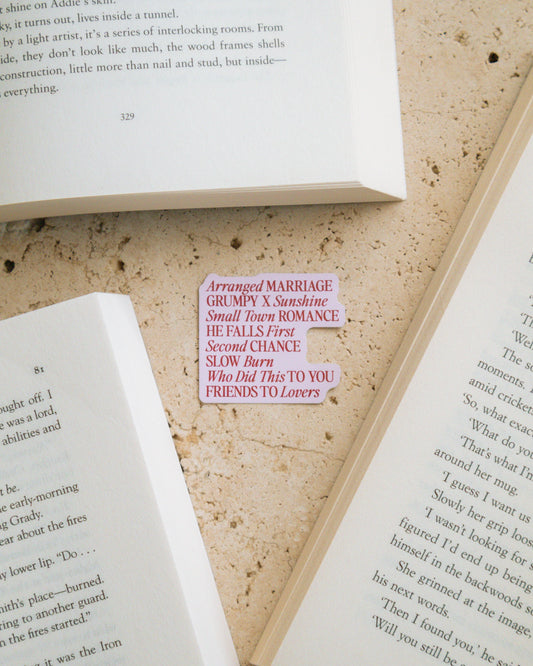 t shine on Addie's skin.
ky, it turns out, lives inside a tunnel.
by a light artist, it's a series of interlocking rooms. From
ide, they don't look like much, the wood frames shells
construction, little more than nail and stud, but inside—
everything.
329
Arranged MARRIAGE
GRUMPY X Sunshine
Small Town ROMANCE
HE FALLS First
Second CHANCE
SLOW Burn
Who Did This TO YOU
FRIENDS TO Lovers
81
ought off. I
was a lord,
abilities and
t be.
e early-morning
ng Grady.
ear about the fires
y lower lip. "Do . . .
mith's place—burned.
ring to another guard.
n the fires started."
it was the Iron
'Th
'Well
The so
moments.
amid cricket
'So, what exac
'What do yo
'That's what I'm
around her mug.
'I guess I want us
Slowly her grip loos
'I wasn't looking for s
figured I'd end up being
himself in the backwoods so
She grinned at the image,
his next words.
'Then I found you,' he sa
'Will you still be